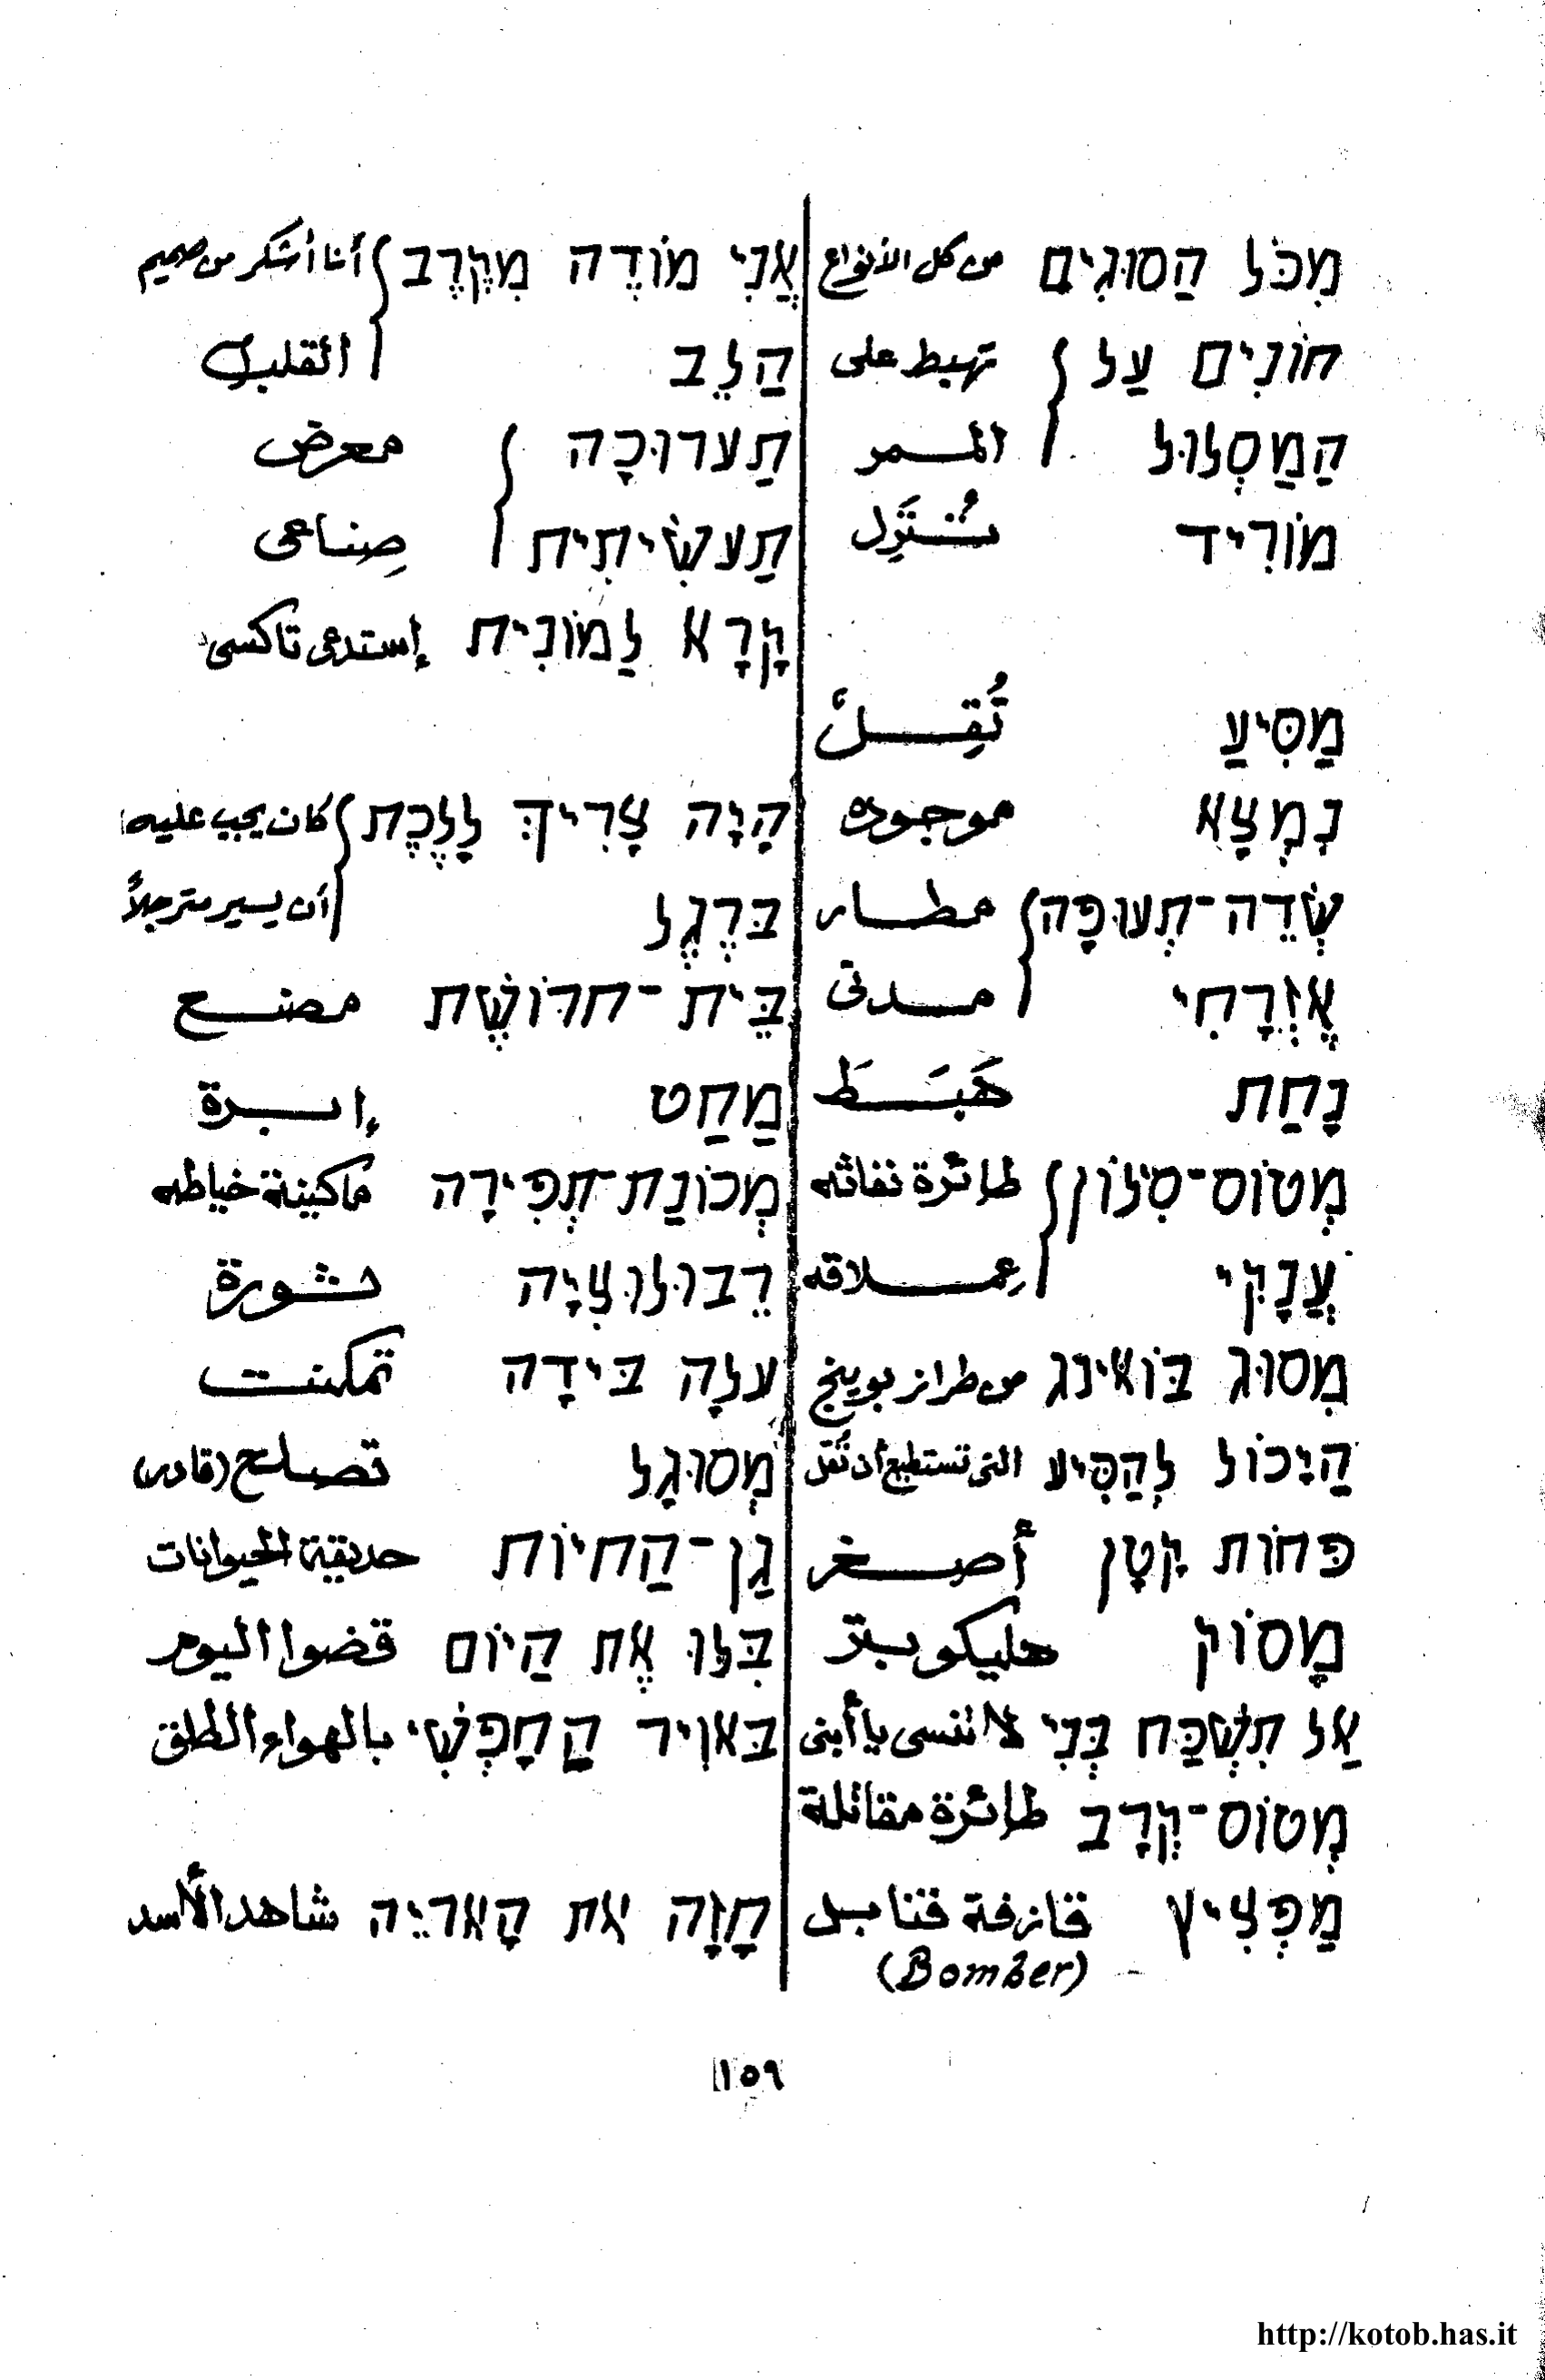 מִכֹּל הַסּוּגִים من كل الأنواع
חוֹנִים עַל تهبط على
הַמַּסְלוּל الممر
מוֹרִיד تُنَزِّل
מַסִּיעַ تُقِلّ
נִמְצָא موجوده
שְׂדֵה-תְּעוּפָה مطار
אֶזְרָחִי مدنى
נָחַת هَبَطَ
מְטוֹס-סִלוֹן طائرة نفاثه
עֲנָקִי عِملاقه
מִסוּג בּוֹאִינג من طراز بوينج
הַיכוֹל לְהַסִּיע التى تستطيع أن تُقل
פּחוֹת קָטָן أصغر
מָסוֹק هليكوبتر
אַל תִּשְׁכַּח בְּנִי لا تنسى يا أبنى
מְטוֹס-קְרָב طائرة مقاتلة
מַפְצִיץ قازفة قنابل
(Bomber)
אֲנִי מוֹדֶה מִקֶּרֶב أنا أشكر من صميم
הַלֵב القلب
תַערוּכָה معرض
תַעשִׂיתִית صِناعى
קָרָא לַמוֹנִית إستدعى تاكسى
הָיָה צָרִיךְ לָלֶכֶת كان يجب عليه
בּרֶגֶל أن يسير مترجلاً
בֵּית-חרוֹשֶׁת مصنع
מַחַט إبرة
מְכוֹנַת-תְּפִירָה ماكينة خياطه
רֵבוּלוּצִיָה ثورة
עלָה בּידָה تمكنت
מְסוּגָל تصلح (قادر)
גַן-הַחיוֹת حديقة الحيوانات
בִּלוּ אֶת הַיוֹם قضوا اليوم
בּאוִיר הַחָפְשִׁי بالهواء الطلق
חָזָה את הָאריֵה شاهد الأسد
١٥٩
http://kotob.has.it